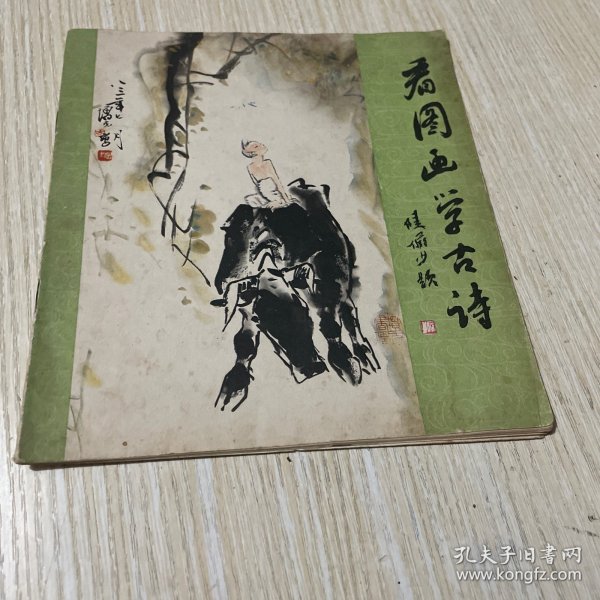 看图画学古诗
八三年七月
孔夫子旧书网
www.kongfz.com